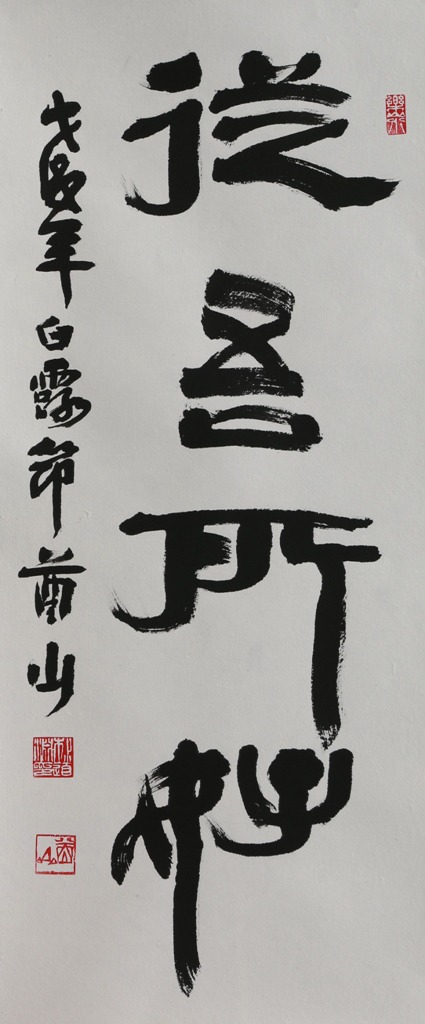 從吾所好
戊戌年白露節酋山